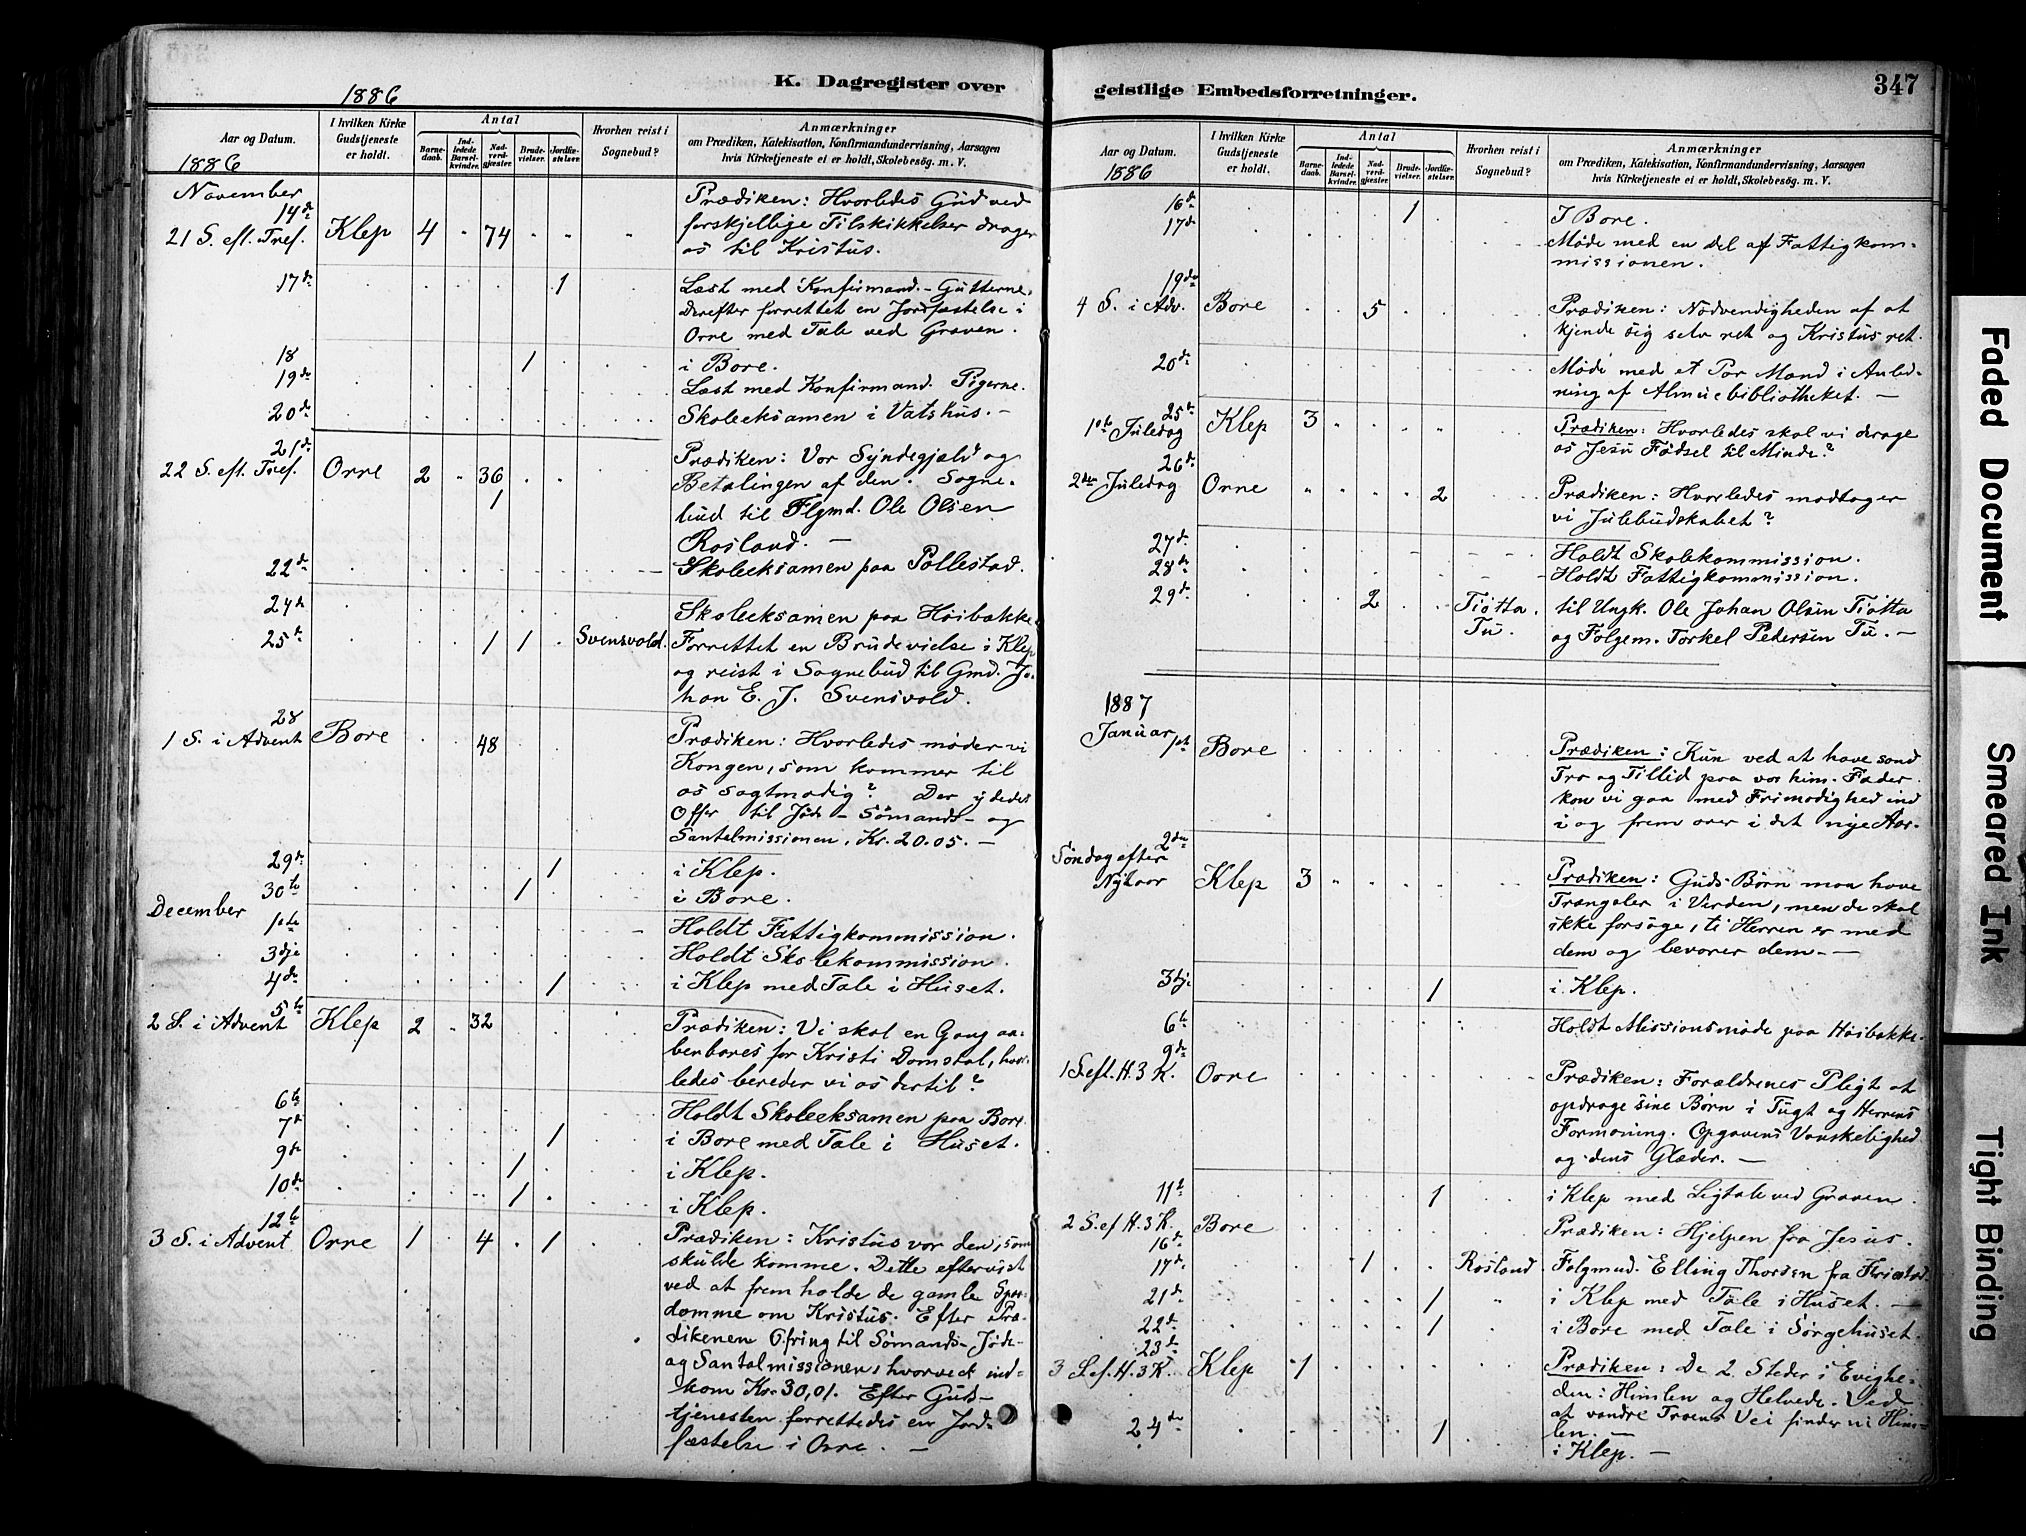 K. Dagregister over
1886
Aar og Datum.
1886
I hvilken Kirke
Gudstjeneste
er holdt.
Antal
Barne-
daab.
Ind-
ledede
Barsel-
kvinder.
Nad-
verd-
gjæster.
Brude-
vielser.
Jordfæ-
stelser.
Hvorhen reist i
Sognebud?
Anmærkninger
om Prædiken, Katekisation, Konfirmandundervisning, Aarsagen
hvis Kirketjeneste ei er holdt, Skolebesøg. m. V.
November
14de
21 S. eft. Tref. Klep 4 " 74 " " "
Prædiken: Hvorledes Gud ved
forskjellige Tilskikkelser drager
os til Kristus.
17de 1 Læst med Konfirmand.- Gutterne.
Derefter forrettet en Jordfæstelse i
Orre med Tale ved Graven.
18 1 i Bore.
19de Læst med Konfirmand. Pigerne.
20de Skoleeksamen i Vatshus. -
21de
22 S. eft. Tref. Orre 2 " 36
1
Prædiken: Vor Syndegjæld og
Betalingen af den. Sogne-
bud til Flgmd. Ole Olsen
Rosland. -
22de Skoleeksamen paa Pollestad.
24de Skoleeksamen paa Høibakke.
25te 1 1 Svensvold. Forrettet en Brudevielse i Klep
og reist i Sognebud til Gmd. Jo-
han E. J. Svensvold.
28
1 S. i Advent Bore 48
Prædiken: Hvorledes møder vi
Kongen, som kommer til
os sagtmodig? Der ydedes
Offer til Jøde- Sømands- og
Santalmissionen, Kr. 20.05. -
29de 1 i Klep.
30te 1 i Bore.
December
1ste Holdt Fattigkommission.
3dje Holdt Skolekommission.
4de 1 i Klep med Tale i Huset.
5te
2 S. i Advent Klep 2 " 32
Prædiken: Vi skal en Gang aa-
benbares for Kristi Domstol, hvor-
ledes bereder vi os dertil?
6te Holdt Skoleeksamen paa Bore.
7de 1 i Bore med Tale i Huset.
9de 1 i Klep.
10de 1 i Klep.
12te
3 S. i Advent Orre 1 " 4 . 1
Prædiken: Kristus var den, som
skulde komme. Dette eftervist
ved at fremholde de gamle Spaa-
domme om Kristus. Efter Præ-
dikenen Ofring til Sømands- Jøde-
og Santalmissionen, hvorved ind-
kom Kr. 30,01. Efter Guds-
tjenesten forrettedes en Jord-
fæstelse i Orre. -
geistlige Embedsforretninger.
347
Aar og Datum.
1886
I hvilken Kirke
Gudstjeneste
er holdt.
Antal
Barne-
daab.
Ind-
ledede
Barsel-
kvinder.
Nad-
verd-
gjæster.
Brude-
vielser.
Jordfæ-
stelser.
Hvorhen reist i
Sognebud?
Anmærkninger
om Prædiken, Katekisation, Konfirmandundervisning, Aarsagen
hvis Kirketjeneste ei er holdt, Skolebesøg. m. V.
16de 1 I Bore.
17de Møde med en del af Fattigkom-
missionen.
19de
4 S. i Adv. Bore 5
Prædiken: Nødvendigheden af at
kjende sig selv ret og Kristus ret.
20de Møde med et Par Mand i Anled-
ning af Almuebibliotheket. -
25te
1ste Juledag Klep 3
Prædiken: Hvorledes skal vi drage
os Jesu Fødsel til Minde?
26de
2den Juledag Orre 2
Prædiken: Hvorledes modtager
vi Julebudskabet?
27de Holdt Skolekommission.
28de Holdt Fattigkommission.
29de 2 Tiøtta. til Ungk. Ole Johan Olsen Tiøtta
Tu. og Folgem. Torkel Pedersen Tu. -
1887
Januar
1ste Bore
Prædiken: Kun ved at have sand
Tro og Tillid paa vor him. Fader
kan vi gaa med Frimodighed ind
i og frem over i det nye Aar.
2den
Søndag efter
Nytaar Klep 3
Prædiken: Guds Børn maa have
Trængsler i Verden, men de skal
ikke forsage, ti Herren er med
dem og bevarer dem. -
3dje 1 i Klep.
6te Holdt Missionsmøde paa Høibakke.
9de
1 S. eft. H. 3 K. Orre
Prædiken: Forældrenes Pligt at
opdrage sine Børn i Tugt og Herrens
Formaning. Opgavens Vanskelighed
og dens Glæder. -
11te 1 i Klep med Ligtale ved Graven.
2 S. ef H. 3 K. Bore Prædiken: Hjelpen fra Jesus.
16de
17de 1 Rosland. Folgmud. Elling Thorsen fra
21de 1 " i Klep med Tale i Huset. -
22de 1 i Bore med Tale i Sørgehuset.
23de
3 S. ef. H. 3 K. Klep 1
Prædiken: De 2 Steder i Evighe-
den: Himlen og Helvede. Ved
at vandre Troens Vei finder vi Him-
len. -
24de 1 i Klep. -
Faded Document
Smeared Ink
Tight Binding